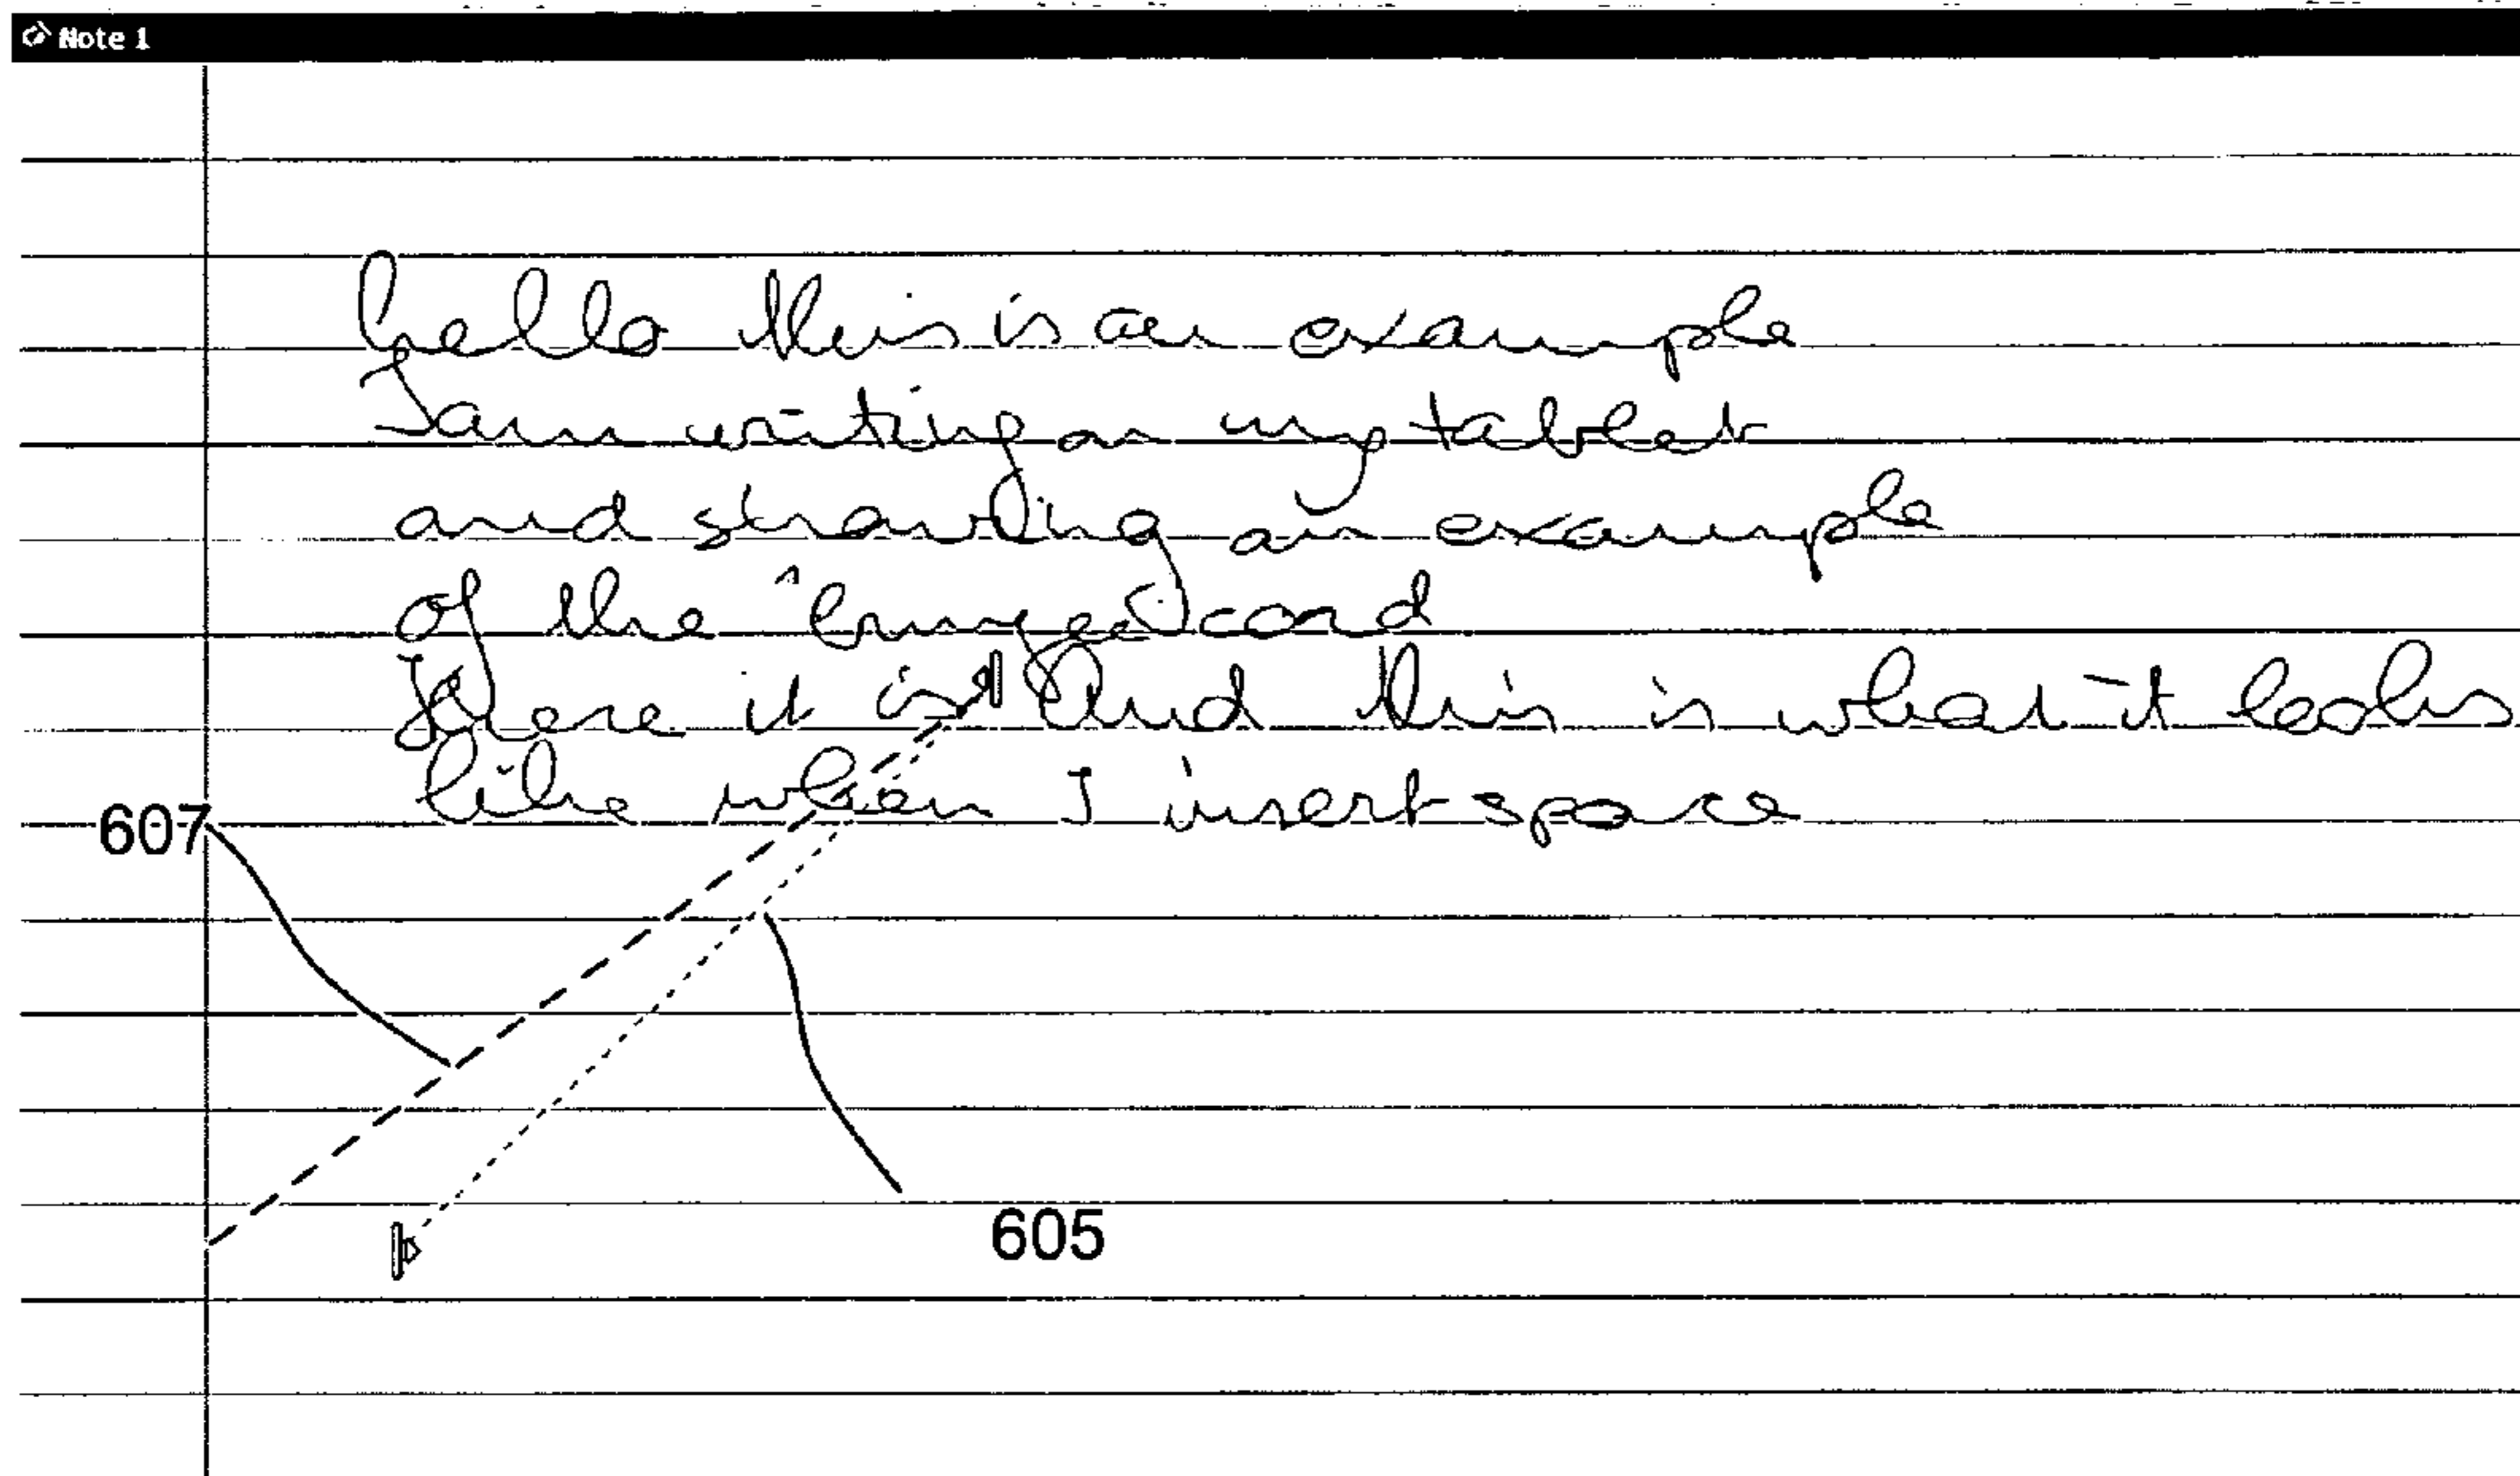 Note 1
hello this is an example
I am writing on my tablet
and showing an example
of the card
Here it is And this is what it looks
like when I insert space
607
605